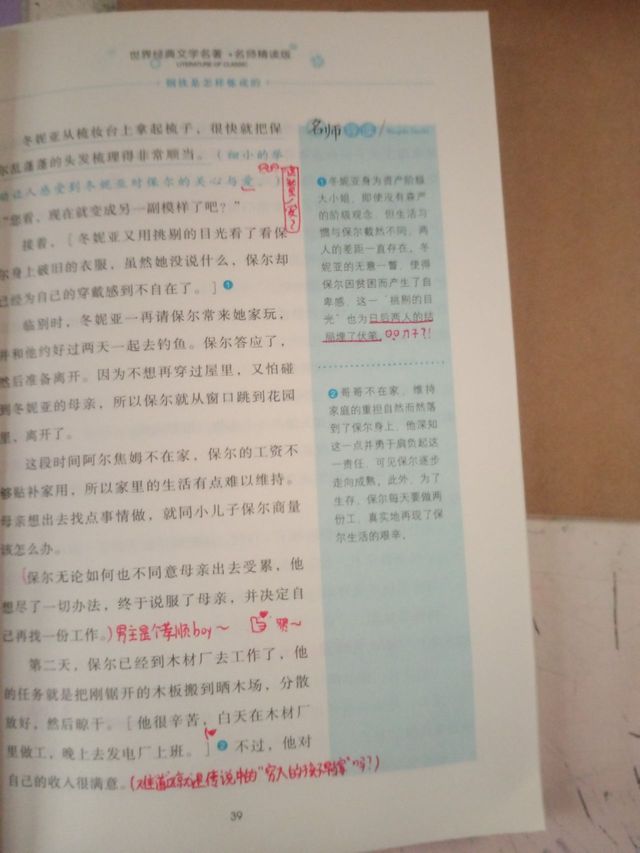 世界经典文学名著·名师精读版
LITERATURE OF CLASSIC
钢铁是怎样炼成的
冬妮亚从梳妆台上拿起梳子，很快就把保
尔乱蓬蓬的头发梳理得非常顺当。（细小的举
动让人感受到冬妮亚对保尔的关心与爱。）
“您看，现在就变成另一副模样了吧？”
接着，[冬妮亚又用挑剔的目光看了看保
尔身上破旧的衣服，虽然她没说什么，保尔却
已经为自己的穿戴感到不自在了。]❶
临别时，冬妮亚一再请保尔常来她家玩，
并和他约好过两天一起去钓鱼。保尔答应了，
然后准备离开。因为不想再穿过屋里，又怕碰
到冬妮亚的母亲，所以保尔就从窗口跳到花园
里，离开了。
这段时间阿尔焦姆不在家，保尔的工资不
够贴补家用，所以家里的生活有点难以维持。
母亲想出去找点事情做，就同小儿子保尔商量
该怎么办。
保尔无论如何也不同意母亲出去受累，他
想尽了一切办法，终于说服了母亲，并决定自
己再找一份工作。)男主是个孝顺boy～
第二天，保尔已经到木材厂去工作了，他
的任务就是把刚锯开的木板搬到晒木场，分散
放好，然后晾干。[他很辛苦，白天在木材厂
里做工，晚上去发电厂上班。]❷不过，他对
自己的收入很满意。(难道这就是传说中的“穷人的孩子早当家”吗？)
39
名师
❶冬妮亚身为资产阶级
大小姐，即使没有森严
的阶级观念，但生活习
惯与保尔截然不同，两
人的差距一直存在。冬
妮亚的无意一瞥，使得
保尔因贫困而产生了自
卑感，这一“挑剔的目
光”也为日后两人的结
局埋了伏笔。
❷哥哥不在家，维持
家庭的重担自然而然落
到了保尔身上，他深知
这一点并勇于肩负起这
一责任，可见保尔逐步
走向成熟。此外，为了
生存，保尔每天要做两
份工，真实地再现了保
尔生活的艰辛。